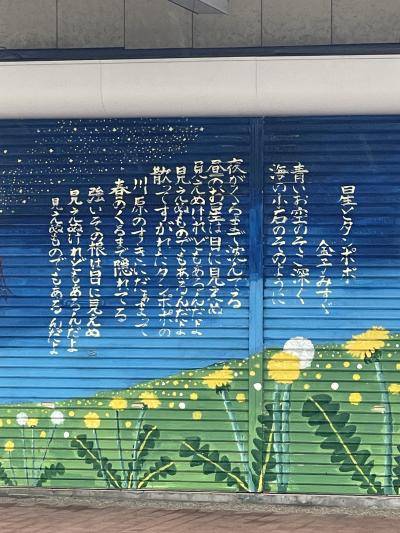 星とタンポポ
金子みすゞ
青いお空のそこ深く
海の小石のそのように
夜がくるまで沈んでる
昼のお星は目に見えぬ
見えぬけれどもあるんだよ
見えぬものでもあるんだよ
散ってすがれたタンポポの
川原のすきにだぁまって
春のくるまで隠れてる
強いその根は目に見えぬ
見えぬけれどもあるんだよ
見えぬものでもあるんだよ